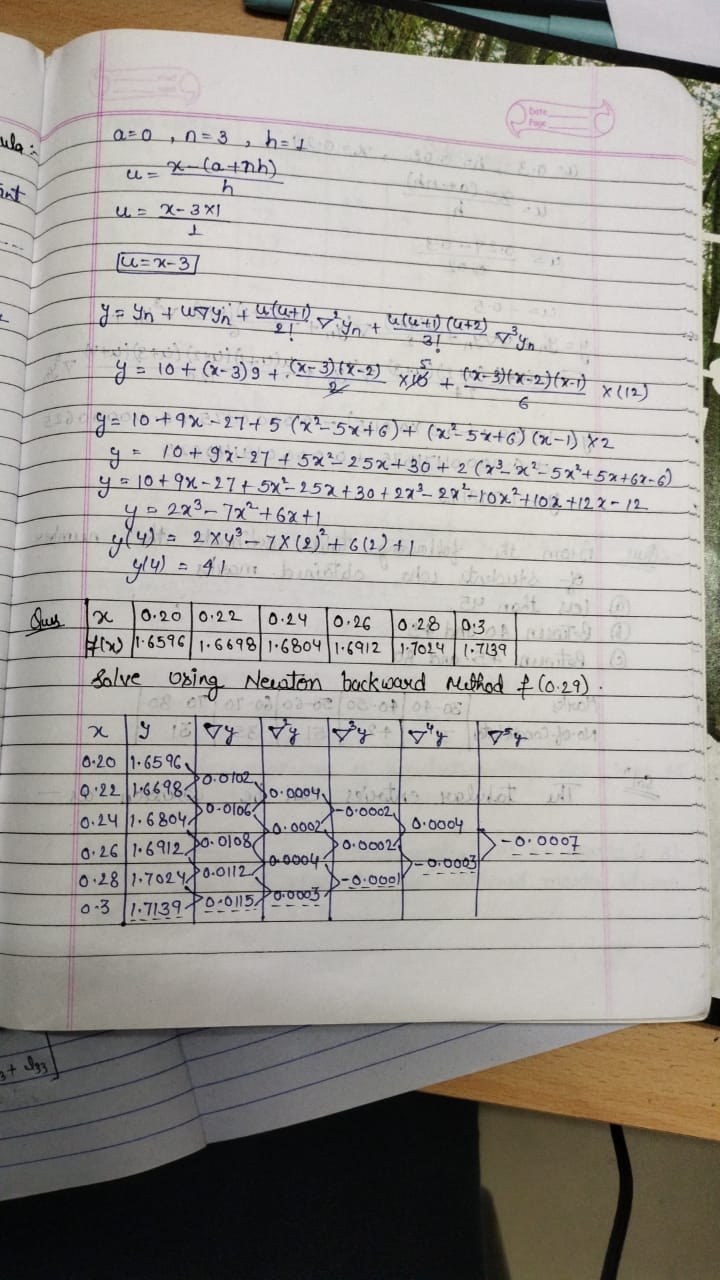 Date
Page
ula:-
int
a=0 , n=3 , h=1
u = x-(a+nh)/h
u = x-3×1/1
u=x-3
y = yn + u∇yn + u(u+1)/2! ∇²yn + u(u+1)(u+2)/3! ∇³yn
y = 10 + (x-3)9 + (x-3)(x-2)/2 ×10 5 + (x-3)(x-2)(x-1)/6 ×(12)
y = 10+9x-27+5(x²-5x+6)+(x²-5x+6)(x-1)×2
y = 10+9x-27+5x²-25x+30+2(x³-x²-5x²+5x+6x-6)
y = 10+9x-27+5x²-25x+30+2x³-2x²-10x²+10x+12x-12
y = 2x³-7x²+6x+1
y(4) = 2×4³-7×(2)²+6(2)+1
y(4) = 41
Ques x 0.20 0.22 0.24 0.26 0.28 0.3
f(x) 1.6596 1.6698 1.6804 1.6912 1.7024 1.7139
Solve using Newton backward Method f(0.29).
x y ∇y ∇²y ∇³y ∇⁴y ∇⁵y
0.20 1.6596
0.0102
0.22 1.6698 0.0004
0.0106 -0.0002
0.24 1.6804 0.0002 0.0004
0.0108 0.0002 -0.0007
0.26 1.6912 0.0004 -0.0003
0.0112 -0.0001
0.28 1.7024 0.0003
0.0115
0.3 1.7139
3+ l33]